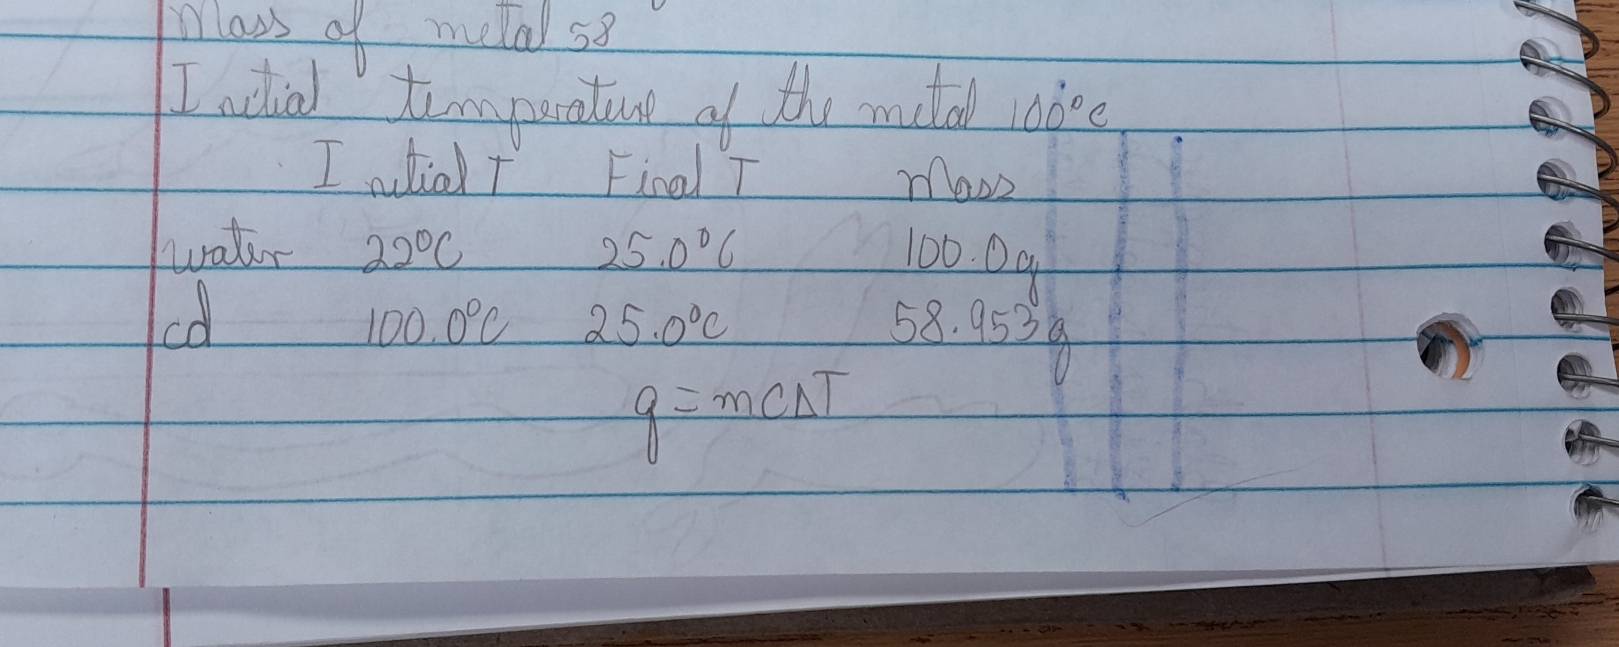 Mass of metal 58
Initial temperature of the metal 100°C
Initial T Final T Mass
water 22°C 25.0°C 100.0g
cd 100.0°C 25.0°C 58.953g
q = mCΔT